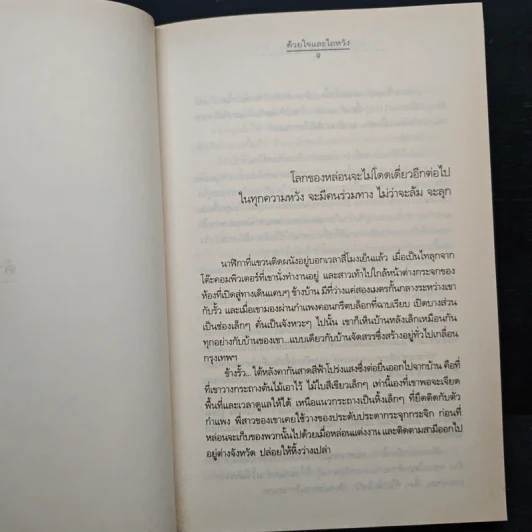 ด้วยใจและไอหวัง
9
โลกของหล่อนจะไม่โดดเดี่ยวอีกต่อไป
ในทุกความหวัง จะมีคนร่วมทาง ไม่ว่าจะล้ม จะลุก
นาฬิกาที่แขวนติดผนังอยู่บอกเวลาสี่โมงเย็นแล้ว เมื่อเป็นไทลุกจาก
โต๊ะคอมพิวเตอร์ที่เขานั่งทำงานอยู่ และสาวเท้าไปใกล้หน้าต่างกระจกของ
ห้องที่เปิดสู่ทางเดินแคบๆ ข้างบ้าน มีที่ว่างแค่สองเมตรกั้นกลางระหว่างเขา
กับรั้ว และเมื่อเขามองผ่านกำแพงคอนกรีตบล็อกที่ฉาบเรียบ เปิดบางส่วน
เป็นช่องเล็กๆ คั่นเป็นจังหวะๆ ไปนั้น เขาก็เห็นบ้านหลังเล็กเหมือนกัน
ทุกอย่างกับบ้านของเขา...แบบเดียวกับบ้านจัดสรรซึ่งสร้างอยู่ทั่วไปเกลื่อน
กรุงเทพฯ
ข้างรั้ว... ใต้หลังคากันสาดสีฟ้าโปร่งแสงซึ่งต่อยื่นออกไปจากบ้าน คือที่
ที่เขาวางกระถางต้นไม้เอาไว้ ไม้ใบสีเขียวเล็กๆ เท่านี้เองที่เขาพอจะเจียด
พื้นที่และเวลาดูแลให้ได้ เหนือแนวกระถางเป็นหิ้งเล็กๆ ที่ยึดติดกับตัว
กำแพง พี่สาวของเขาเคยใช้วางของประดับประดากระจุกกระจิก ก่อนที่
หล่อนจะเก็บของพวกนั้นไปด้วยเมื่อหล่อนแต่งงาน และติดตามสามีออกไป
อยู่ต่างจังหวัด ปล่อยให้หิ้งว่างเปล่า